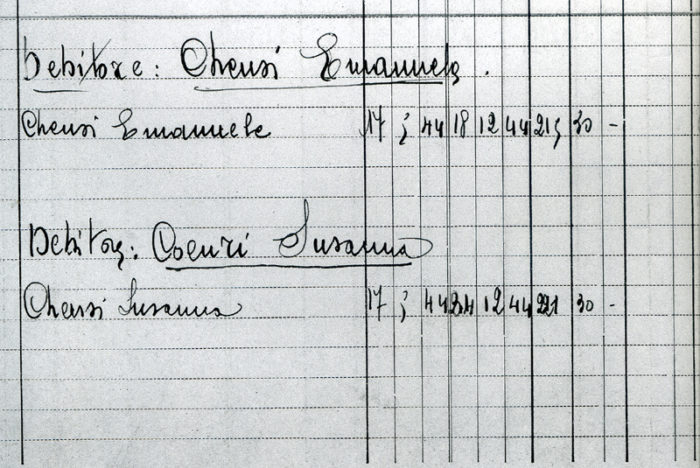 Debitore: Cheusi Emanuele.
Cheusi Emanuele 17 5 44 18 12 44 215 30 -
Debitore: Coenri Susanna
Cheusi Susanna 17 5 44 24 12 44 221 30 -